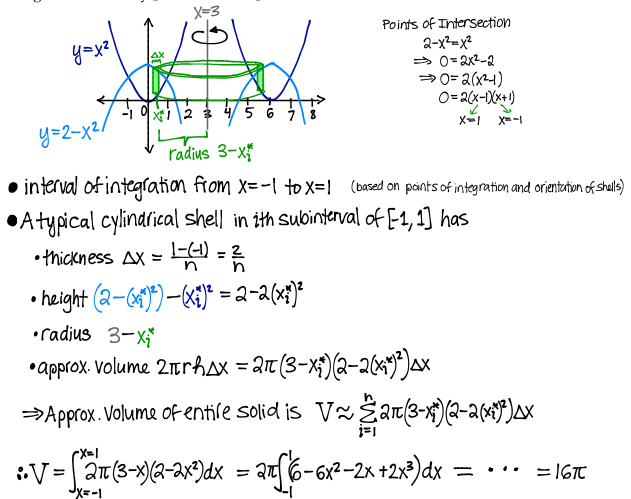 x=3
y=x²
Δx
y=2-x²
-1 0 xᵢ* 1 2 3 4 5 6 7 8
radius 3-xᵢ*
Points of Intersection
2-x²=x²
⇒ 0=2x²-2
⇒ 0=2(x²-1)
0=2(x-1)(x+1)
x=1 x=-1
• interval of integration from x=-1 to x=1 (based on points of integration and orientation of shells)
• A typical cylindrical shell in ith subinterval of [-1,1] has
• thickness Δx = (1-(-1))/n = 2/n
• height (2-(xᵢ*)²)-(xᵢ*)² = 2-2(xᵢ*)²
• radius 3-xᵢ*
• approx. volume 2πrhΔx = 2π(3-xᵢ*)(2-2(xᵢ*)²)Δx
⇒ Approx. volume of entire solid is V≈ Σᵢ₌₁ⁿ 2π(3-xᵢ*)(2-2(xᵢ*)²)Δx
∴ V = ∫ₓ₌₋₁ˣ⁼¹ 2π(3-x)(2-2x²)dx = 2π∫₋₁¹ (6-6x²-2x+2x³)dx = ⋯ = 16π